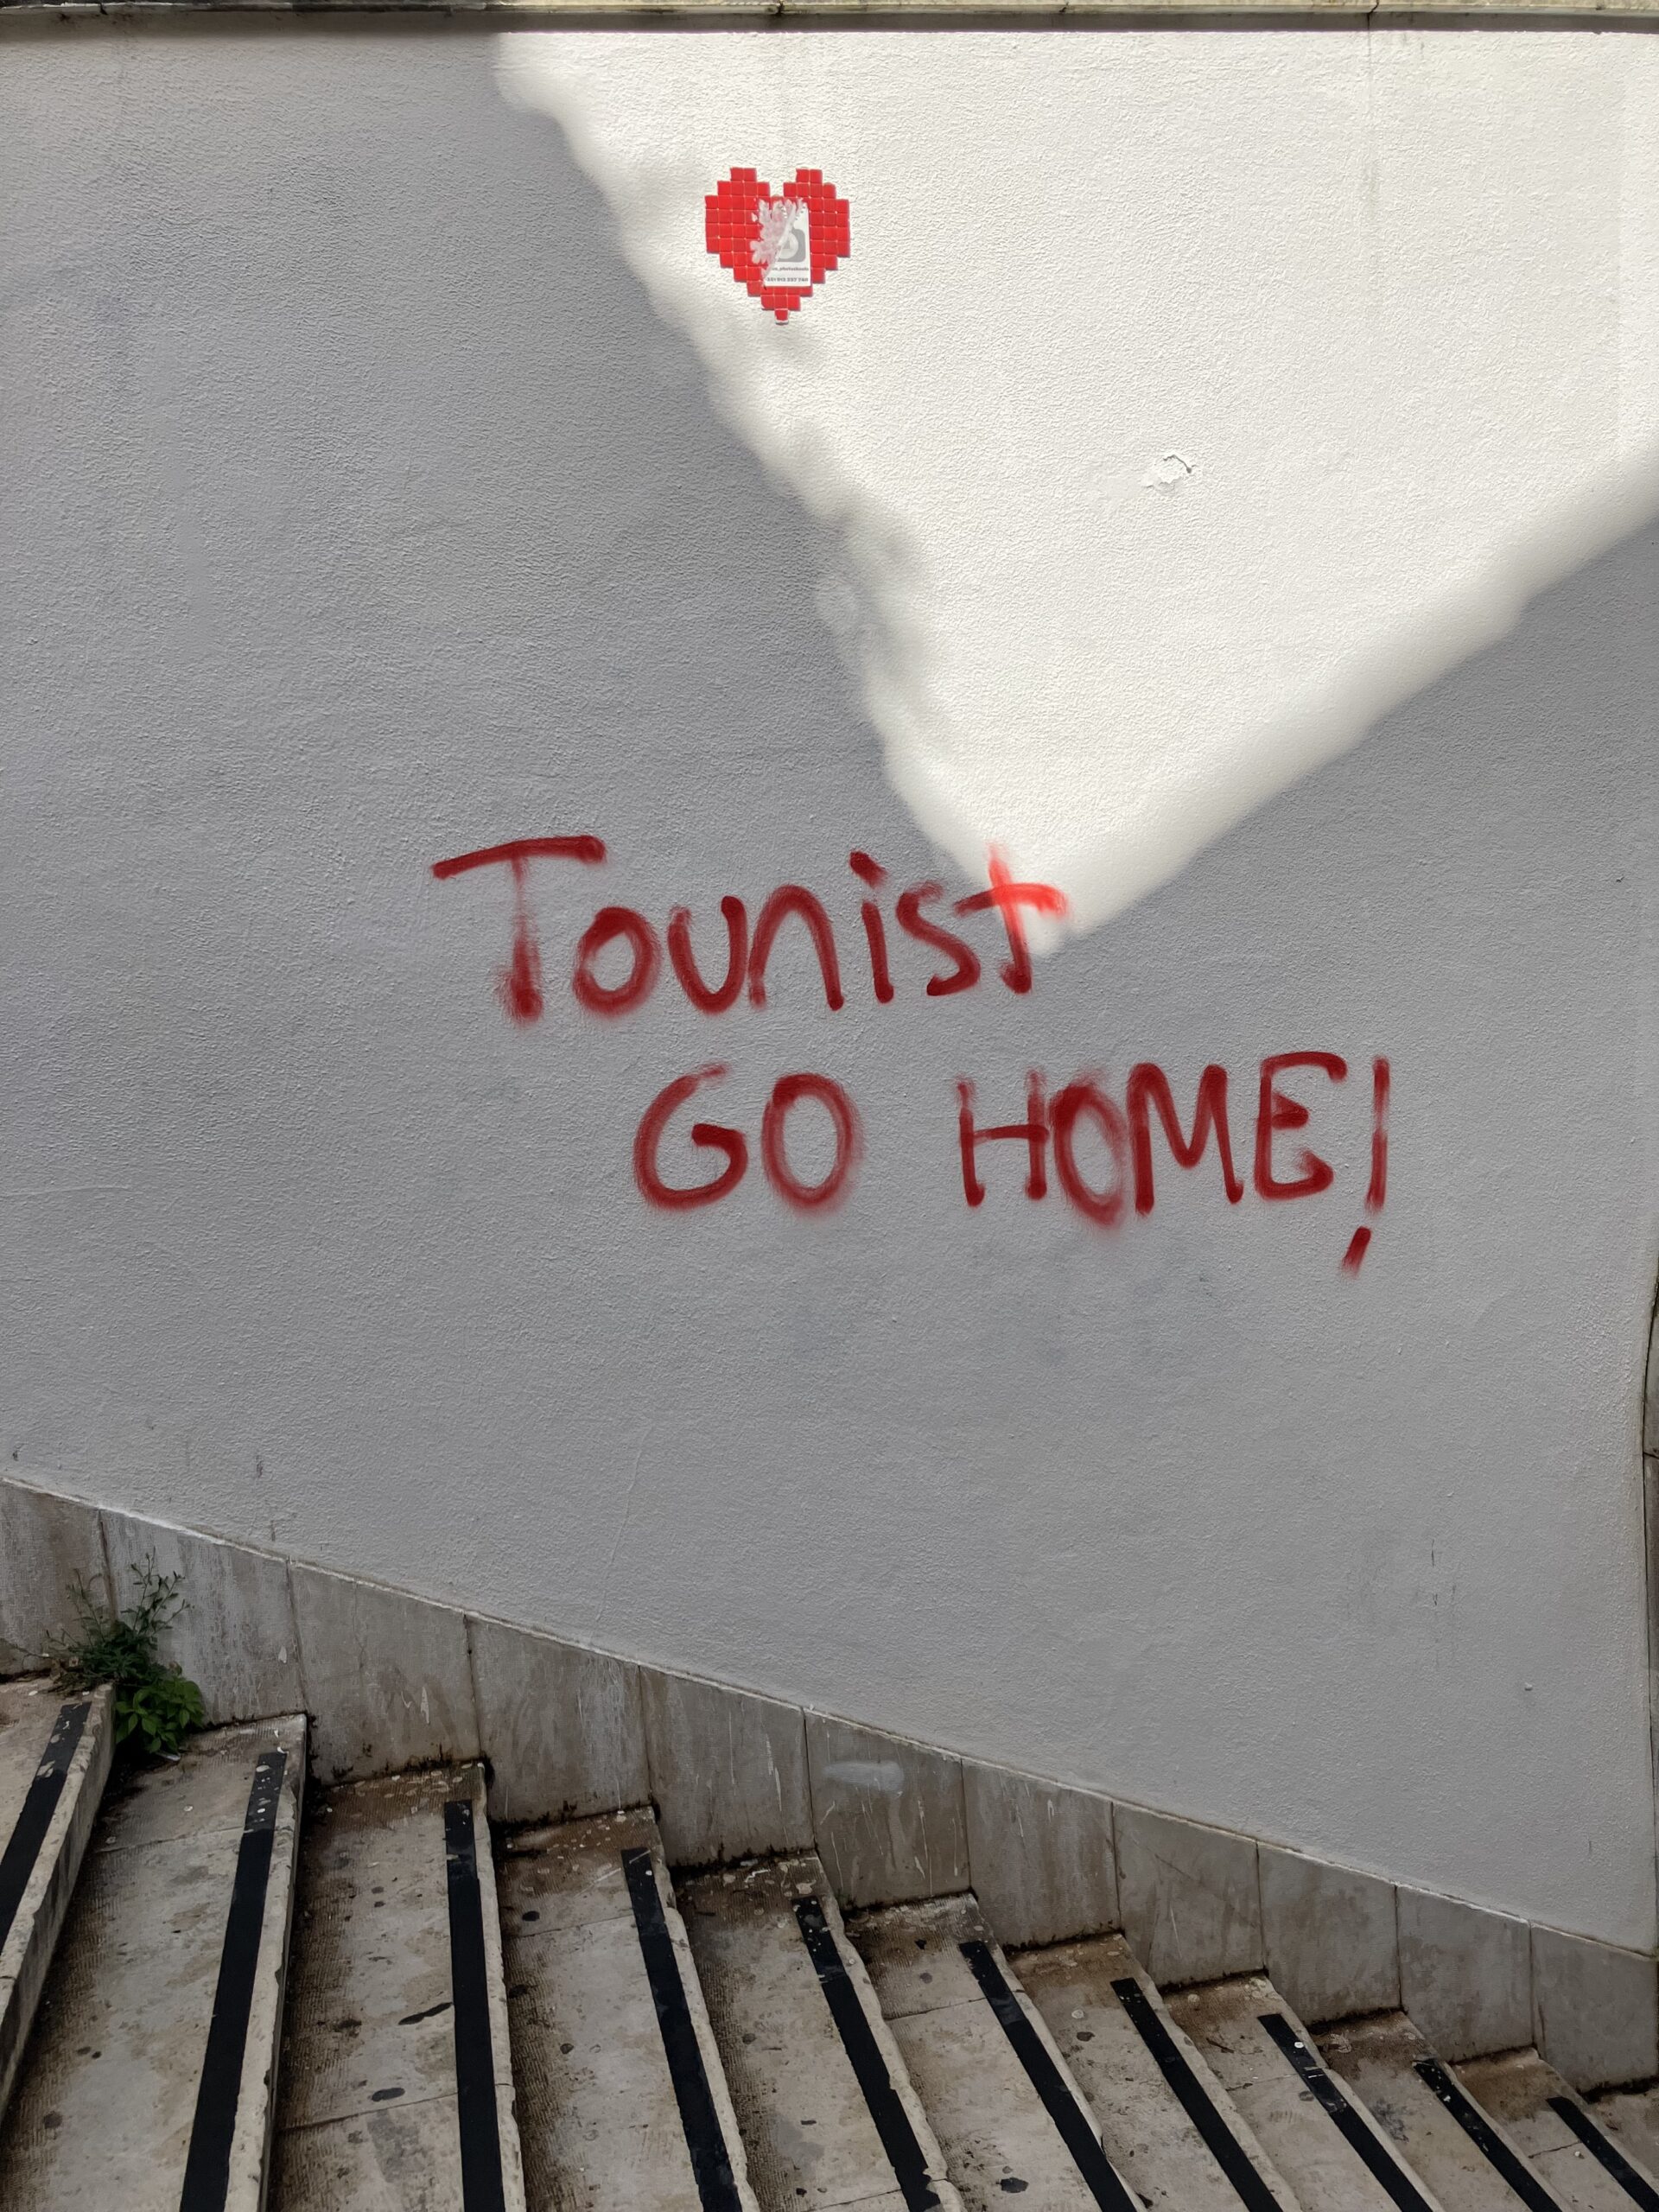 Tourist
GO HOME!